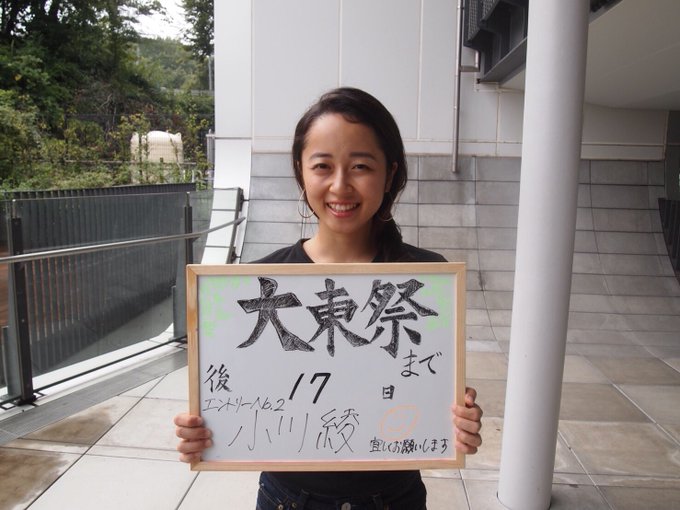 大東祭
まで
後 17 日
エントリーNo.2
小川綾
宜しくお願いします